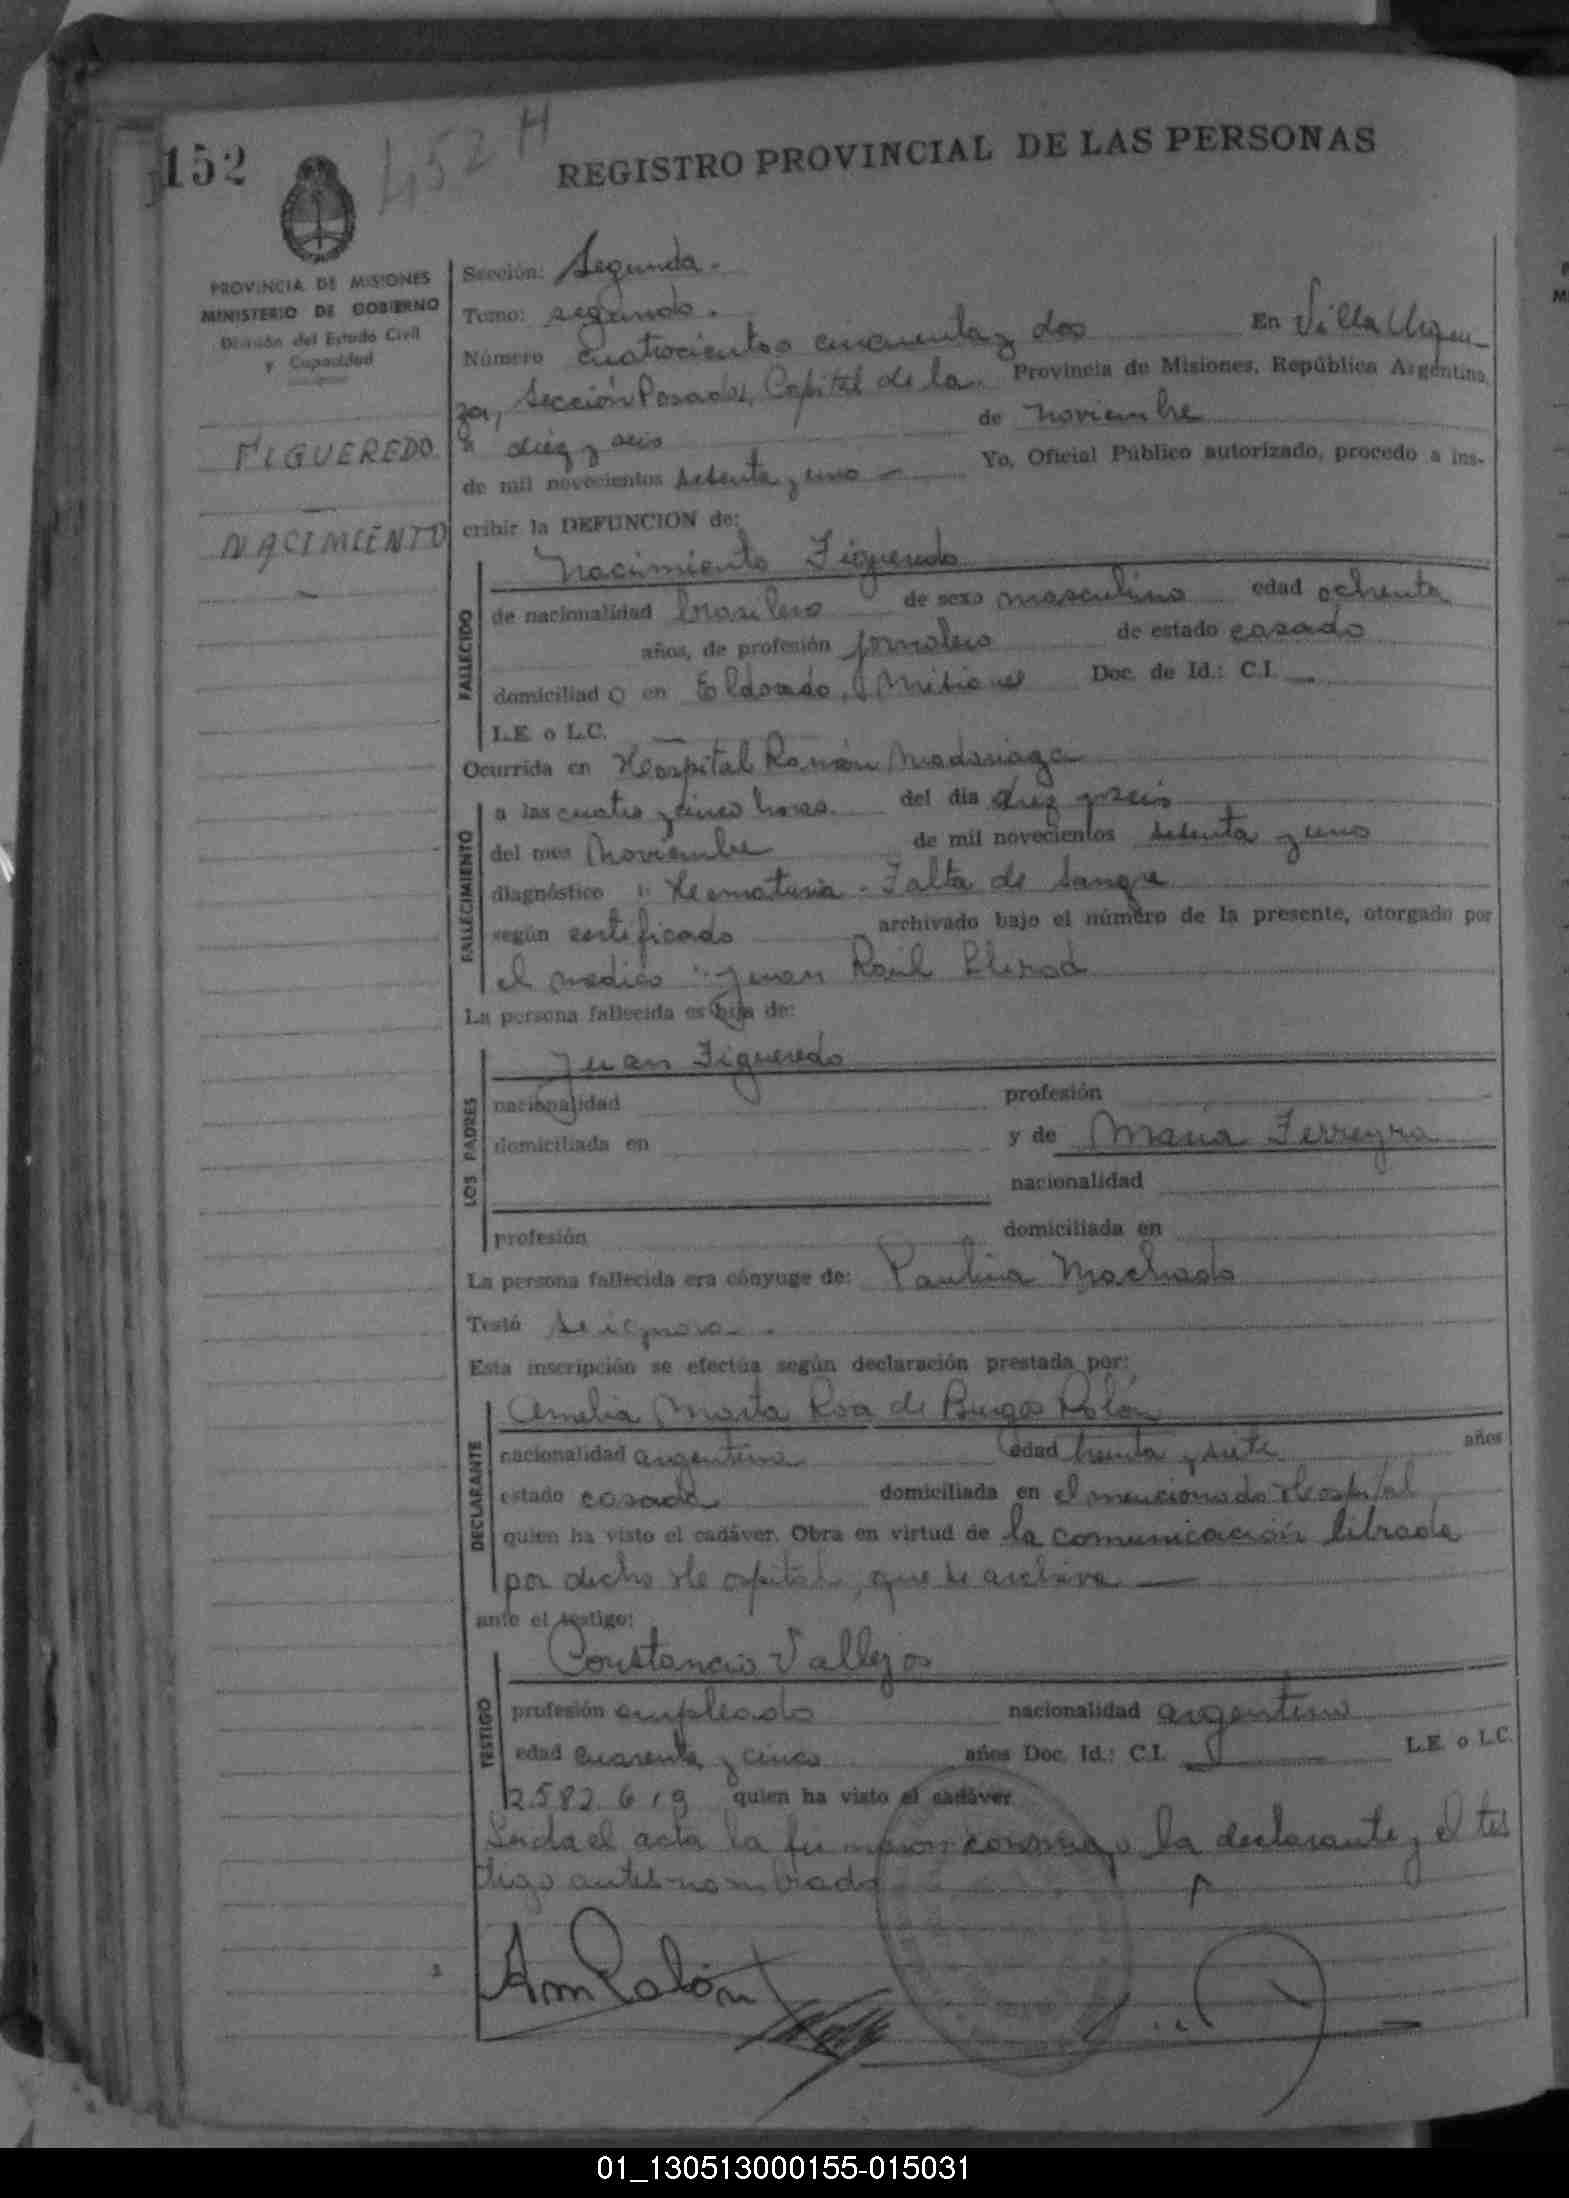 152
452 H
REGISTRO PROVINCIAL DE LAS PERSONAS
PROVINCIA DE MISIONES
MINISTERIO DE GOBIERNO
División del Estado Civil
y Capacidad
FIGUEREDO
NACIMIENTO
Sección: Segunda.
Tomo: segundo.
Número cuatrocientos cincuenta y dos En Villa Urqui-
za, Sección Posadas, Capital de la Provincia de Misiones, República Argentina,
a diez y seis de noviembre
de mil novecientos setenta y uno — Yo, Oficial Público autorizado, procedo a ins-
cribir la DEFUNCION de:
FALLECIDO
Nacimiento Figueredo
de nacionalidad brasilero de sexo masculino edad ochenta
años, de profesión jornalero de estado casado
domiciliado en Eldorado, Misiones Doc. de Id.: C.I. —
L.E. o L.C. —
Ocurrida en Hospital Ramón Madariaga
FALLECIMIENTO
a las cuatro y cinco horas. del día diez y seis
del mes Noviembre de mil novecientos setenta y uno
diagnóstico : Hematuria - Falta de Sangre
según certificado archivado bajo el número de la presente, otorgado por
el medico : Juan Raúl
La persona fallecida es hija de:
LOS PADRES
Juan Figueredo
nacionalidad profesión
domiciliada en y de Maria Ferreyra
nacionalidad
profesión domiciliada en
La persona fallecida era cónyuge de: Paulina Machado
Testó se ignora.
Esta inscripción se efectúa según declaración prestada por:
DECLARANTE
Amelia Marta Roa de Burgos Rolón
nacionalidad argentina edad treinta y siete años
estado casada domiciliada en el mencionado Hospital
quien ha visto el cadáver. Obra en virtud de la comunicación librada
por dicho Hospital, que se archiva —
ante el testigo:
TESTIGO
Constancio Vallejos
profesión empleado nacionalidad argentino
edad cuarenta y cinco años Doc. Id.: C.I. — L.E. o L.C.
2.582.619 quien ha visto el cadáver.
Leida el acta la firmaron conmigo la declarante y el tes
tigo antes nombrado
Am Rolón
01_130513000155-015031